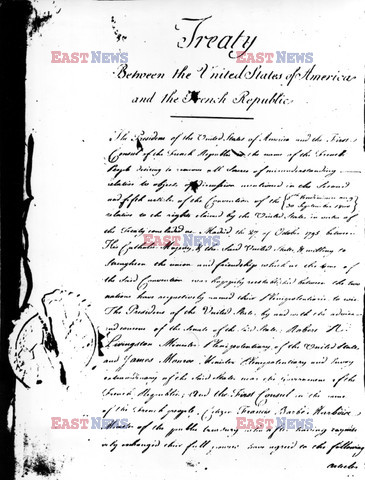 Treaty
Between the United States of America
and the French Republic
The President of the United States of America and the First
Consul of the French Republic in the name of the French
People desiring to remove all Source of misunderstanding
relative to objects of discussion mentioned in the Second
and fifth articles of the Convention of the
30 September 1800
relative to the rights claimed by the United States in virtue of
the Treaty concluded at Madrid the 27 of October 1795 between
His Catholic Majesty, & the Said United States, & willing to
Strengthen the union and friendship which at the time of
the Said Convention was happily reestablished between the two
nations have respectively named their Plenipotentiaries to wit
The President of the United States, by and with the advice
and consent of the Senate of the Said States; Robert R.
Livingston Minister Plenipotentiary of the United States
and James Monroe Minister Plenipotentiary and Envoy
extraordinary of the Said States near the Government of the
French Republic; And the First Consul in the name
of the French people, Citizen Francis Barbé Marbois
Minister of the public treasury who after having respectively
exchanged their full powers have agreed to the following
articles
EAST NEWS
EAST NEWS
EAST NEWS
EAST NEWS
EAST NEWS
EAST NEWS
EAST NEWS
EAST NEWS